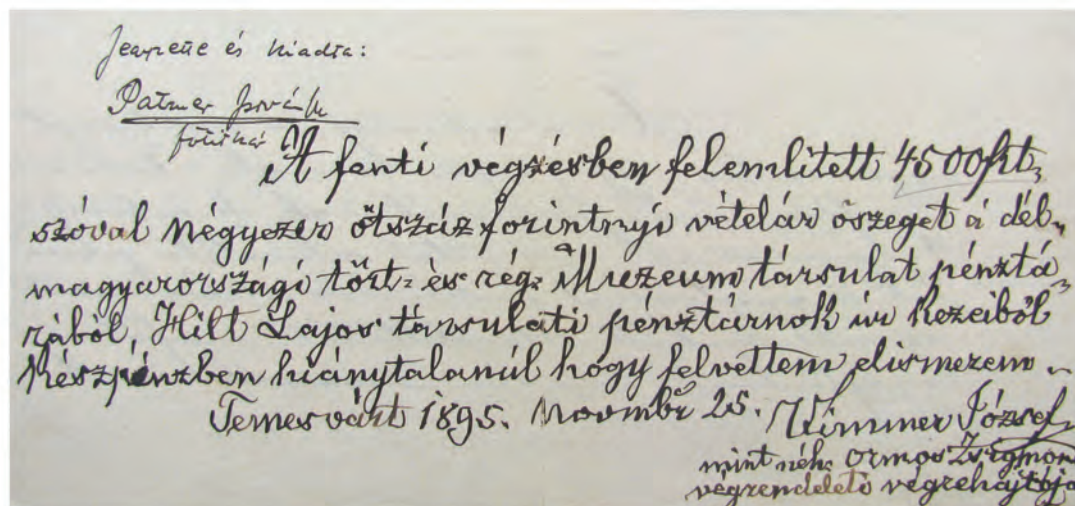 és kiadta:
Patzner István
főtitkár
A fenti végzésben felemlitett 4500 frt,
szóval négyezer ötszáz forintnyi vételár öszeget a dél-
magyarországi tört- és rég. Muzeum társulat pénztá-
rából, Hilt Lajos társulati pénztárnok úr kezeiből
készpénzben hiánytalanúl hogy felvettem elismerem.
Temesvárt 1895. Novmbr 25. Wimmer József
mint néh. Ormos Zsigmon
végrendeleti végrehajtója